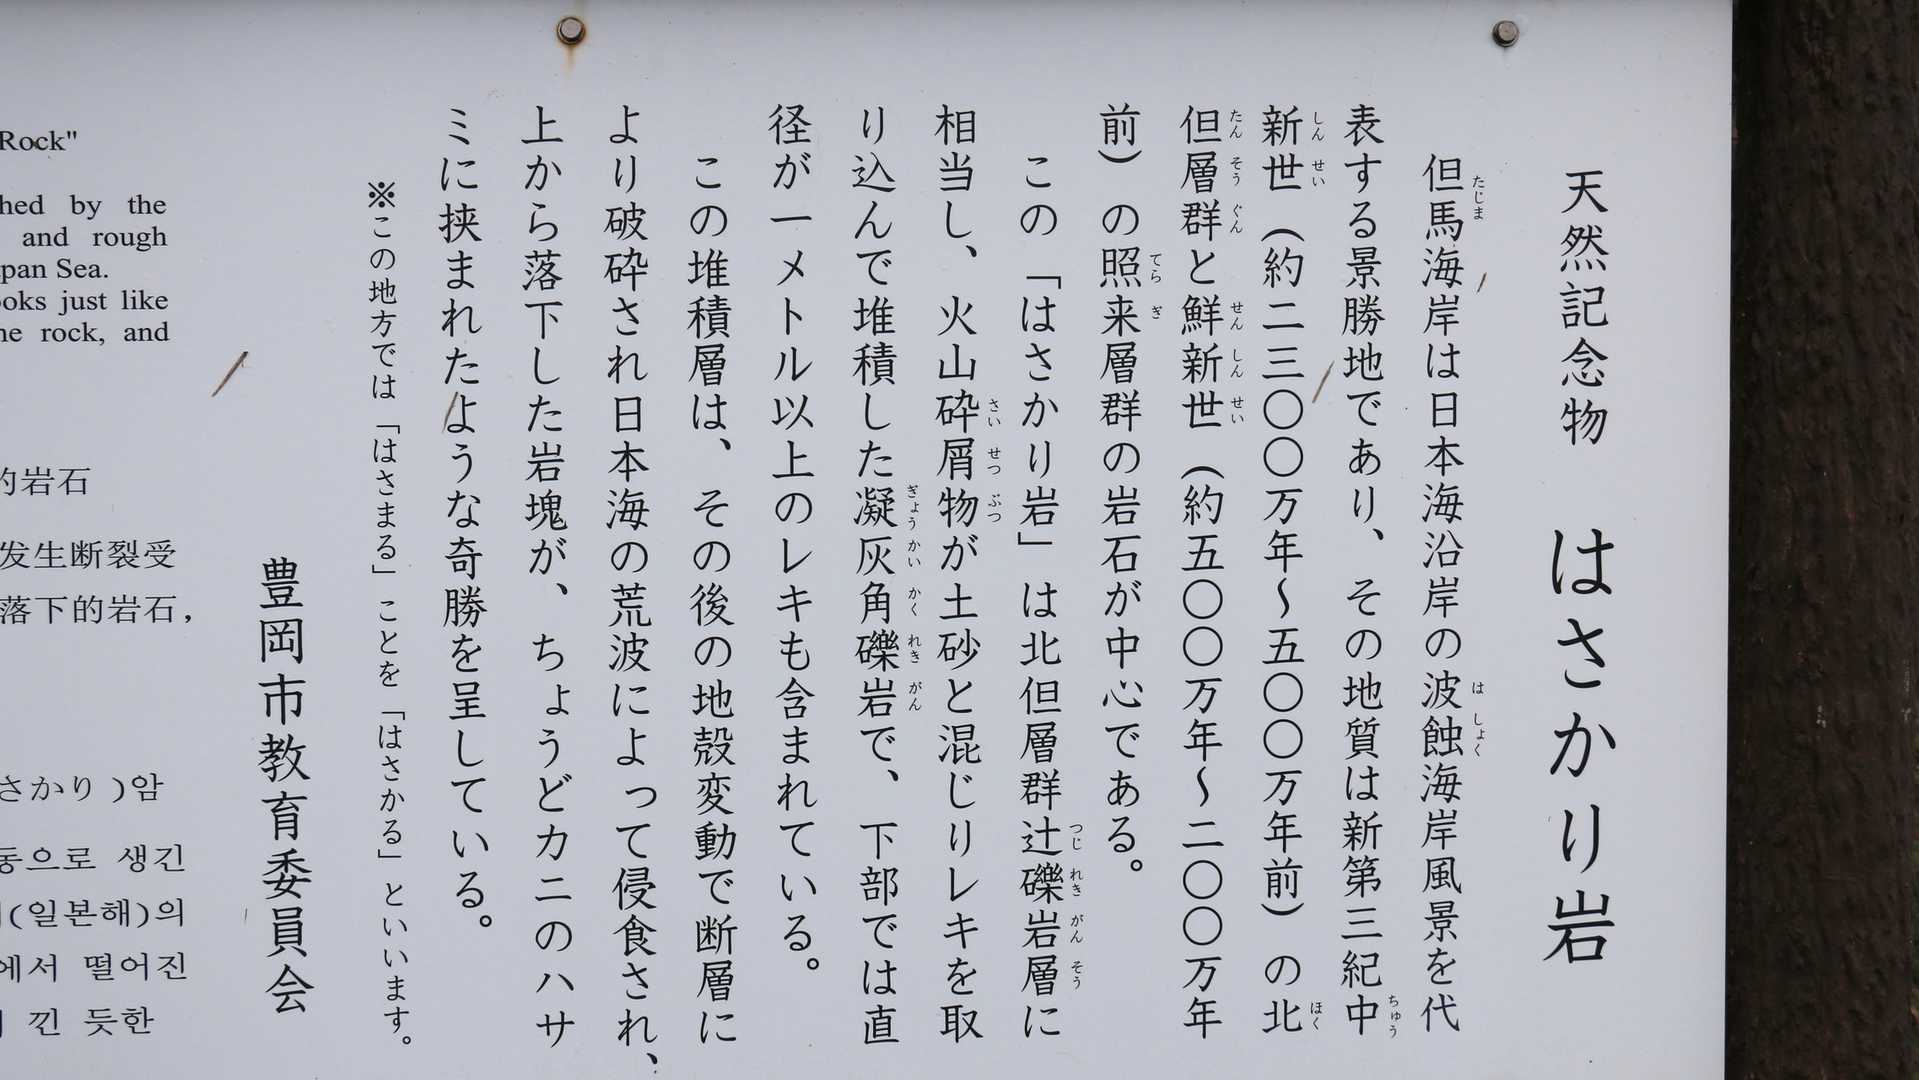 天然記念物　はさかり岩
但馬海岸は日本海沿岸の波蝕海岸風景を代
表する景勝地であり、その地質は新第三紀中
新世（約二三〇〇万年～五〇〇万年前）の北
但層群と鮮新世（約五〇〇万年～二〇〇万年
前）の照来層群の岩石が中心である。
この「はさかり岩」は北但層群辻礫岩層に
相当し、火山砕屑物が土砂と混じりレキを取
り込んで堆積した凝灰角礫岩で、下部では直
径が一メトル以上のレキも含まれている。
この堆積層は、その後の地殻変動で断層に
より破砕され日本海の荒波によって侵食され、
上から落下した岩塊が、ちょうどカニのハサ
ミに挟まれたような奇勝を呈している。
※この地方では「はさまる」ことを「はさかる」といいます。
豊岡市教育委員会
Rock"
hed by the
and rough
pan Sea.
ooks just like
he rock, and
的岩石
发生断裂受
落下的岩石，
さかり )암
동으로 생긴
(일본해)의
에서 떨어진
낀 듯한